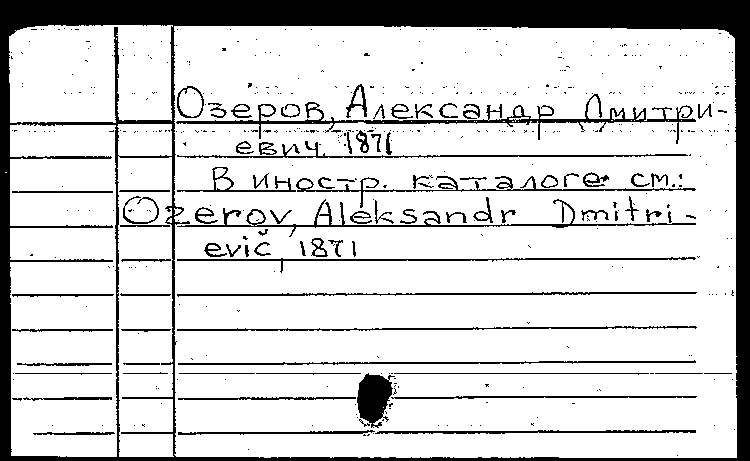 Озеров, Александр Дмитри-
евич. 1871
В иностр. каталоге см.:
Ozerov, Aleksandr Dmitri-
evič, 1871